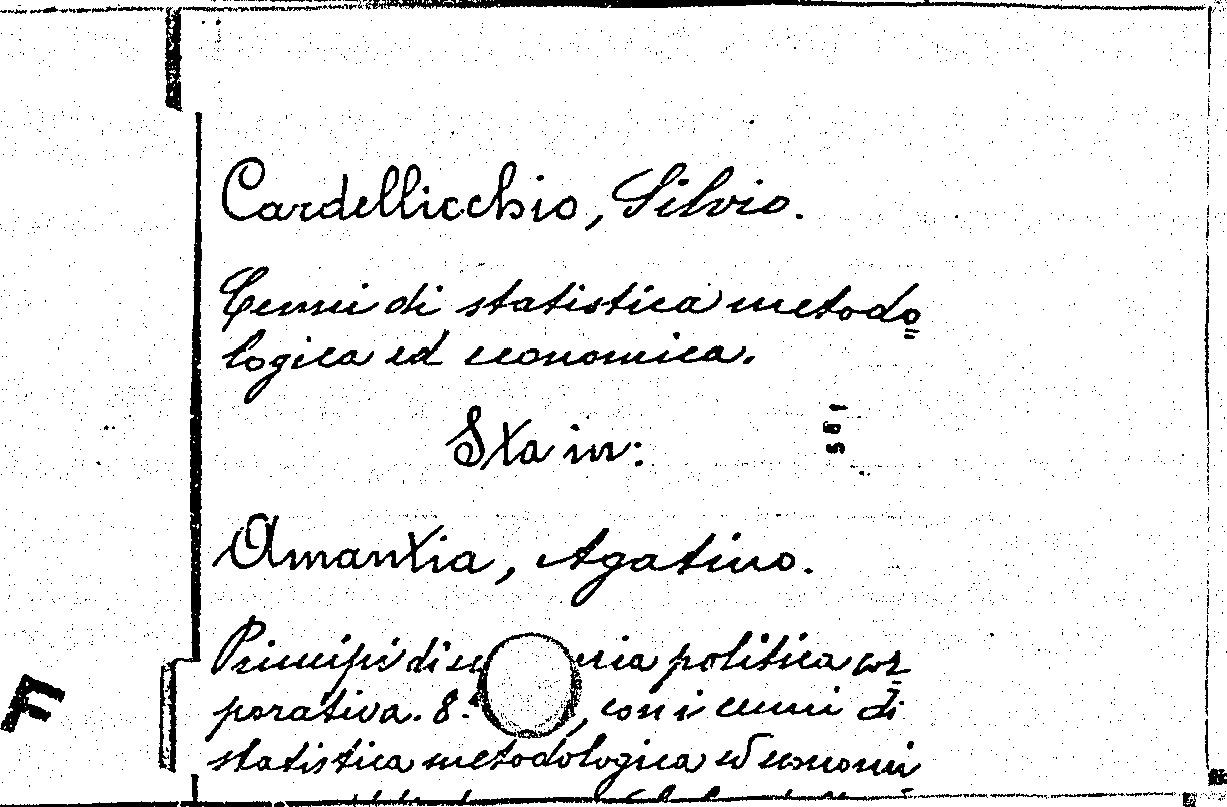 Cardellicchio, Silvio.
Cenni di statistica metodo
logica ed economica.
Sta in:
581
Amantia, Agatino.
Principi di politica cor
porativa. 8.ª , con i cenni di
statistica metodologica ed economi
F